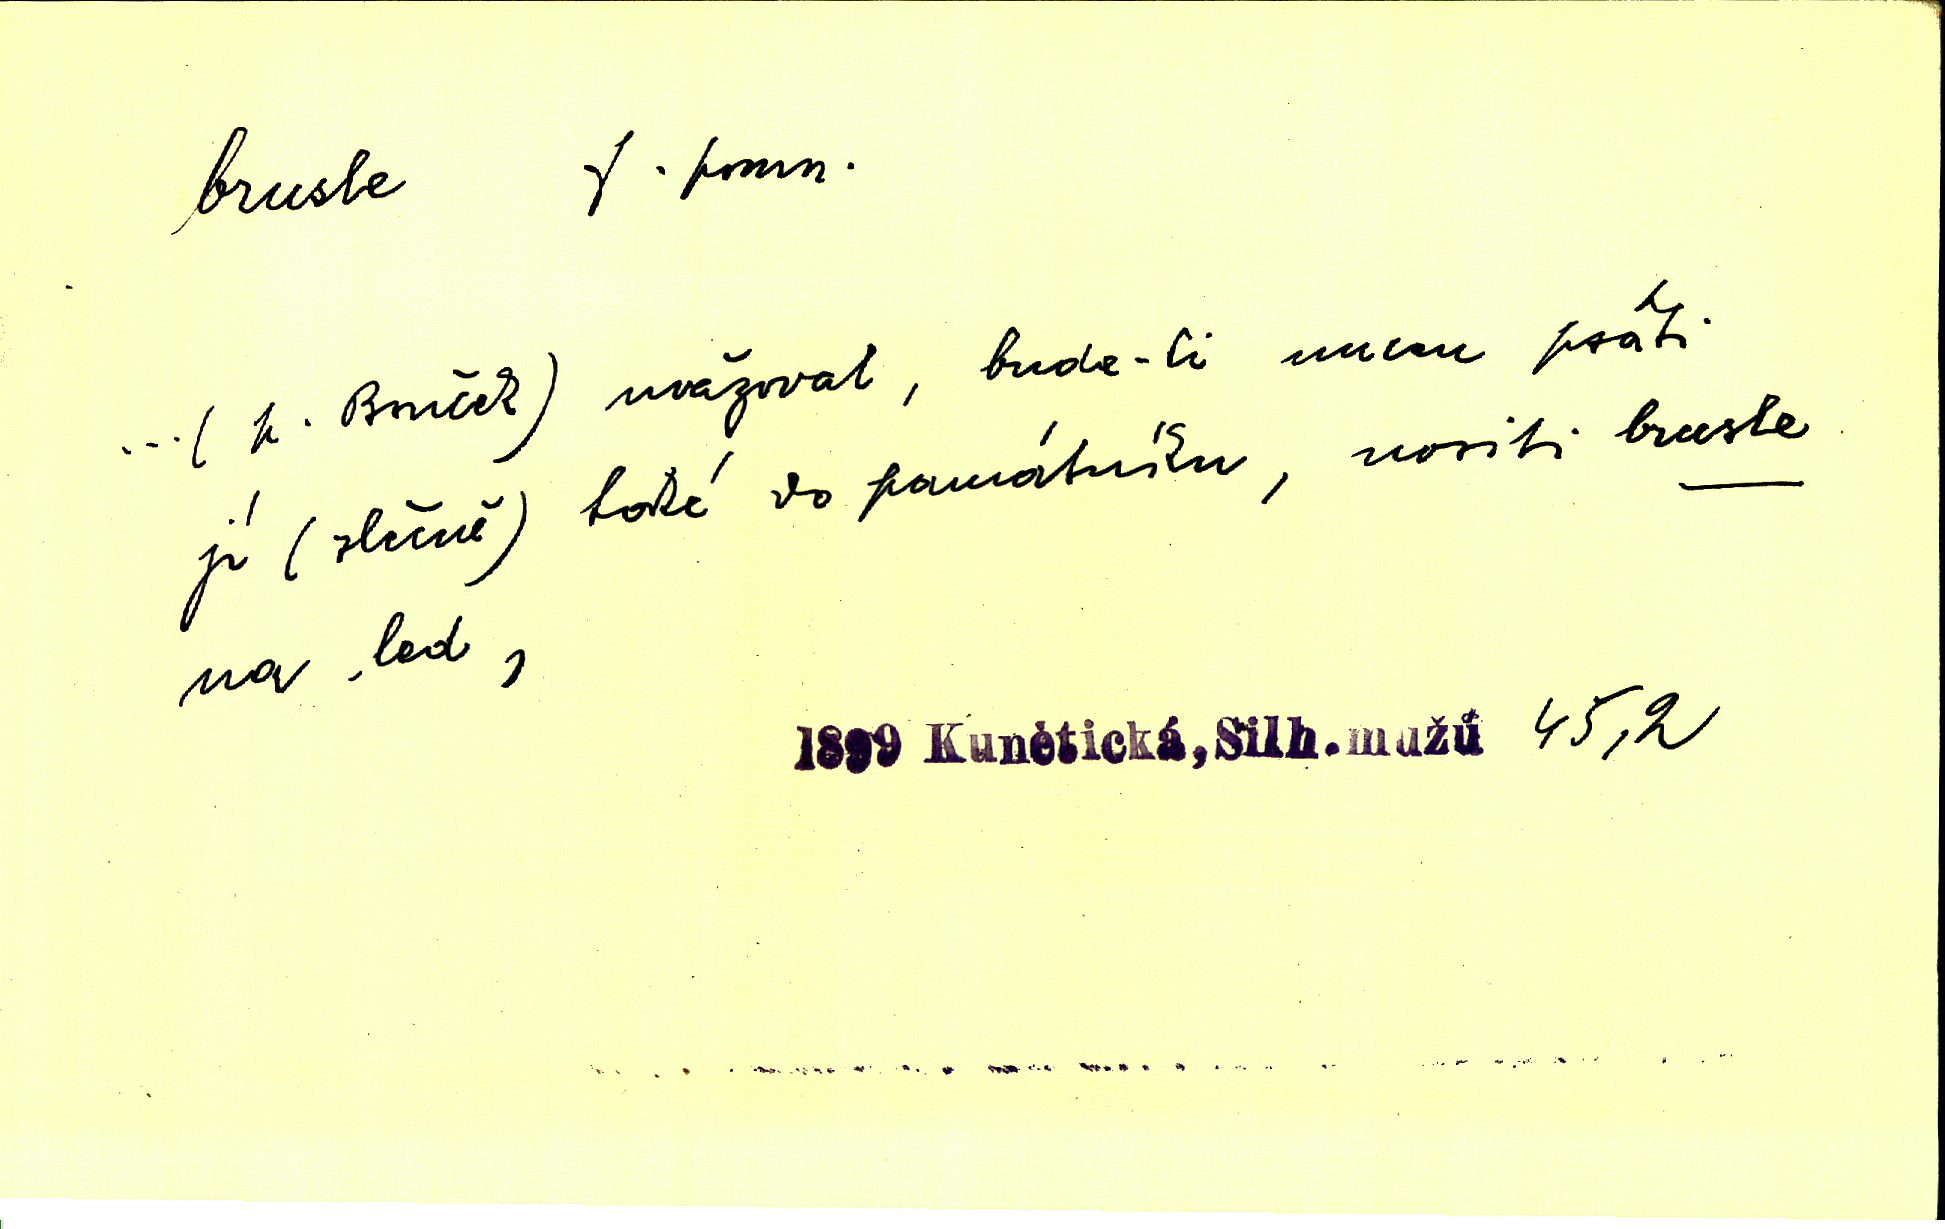 brusle f. pomn.
...( p. Bouček) uvažoval, bude-li nucen psáti
jí (slečně) také do památníku, nositi brusle
na led,
1899 Kunětická, Silh. mužů 45,2